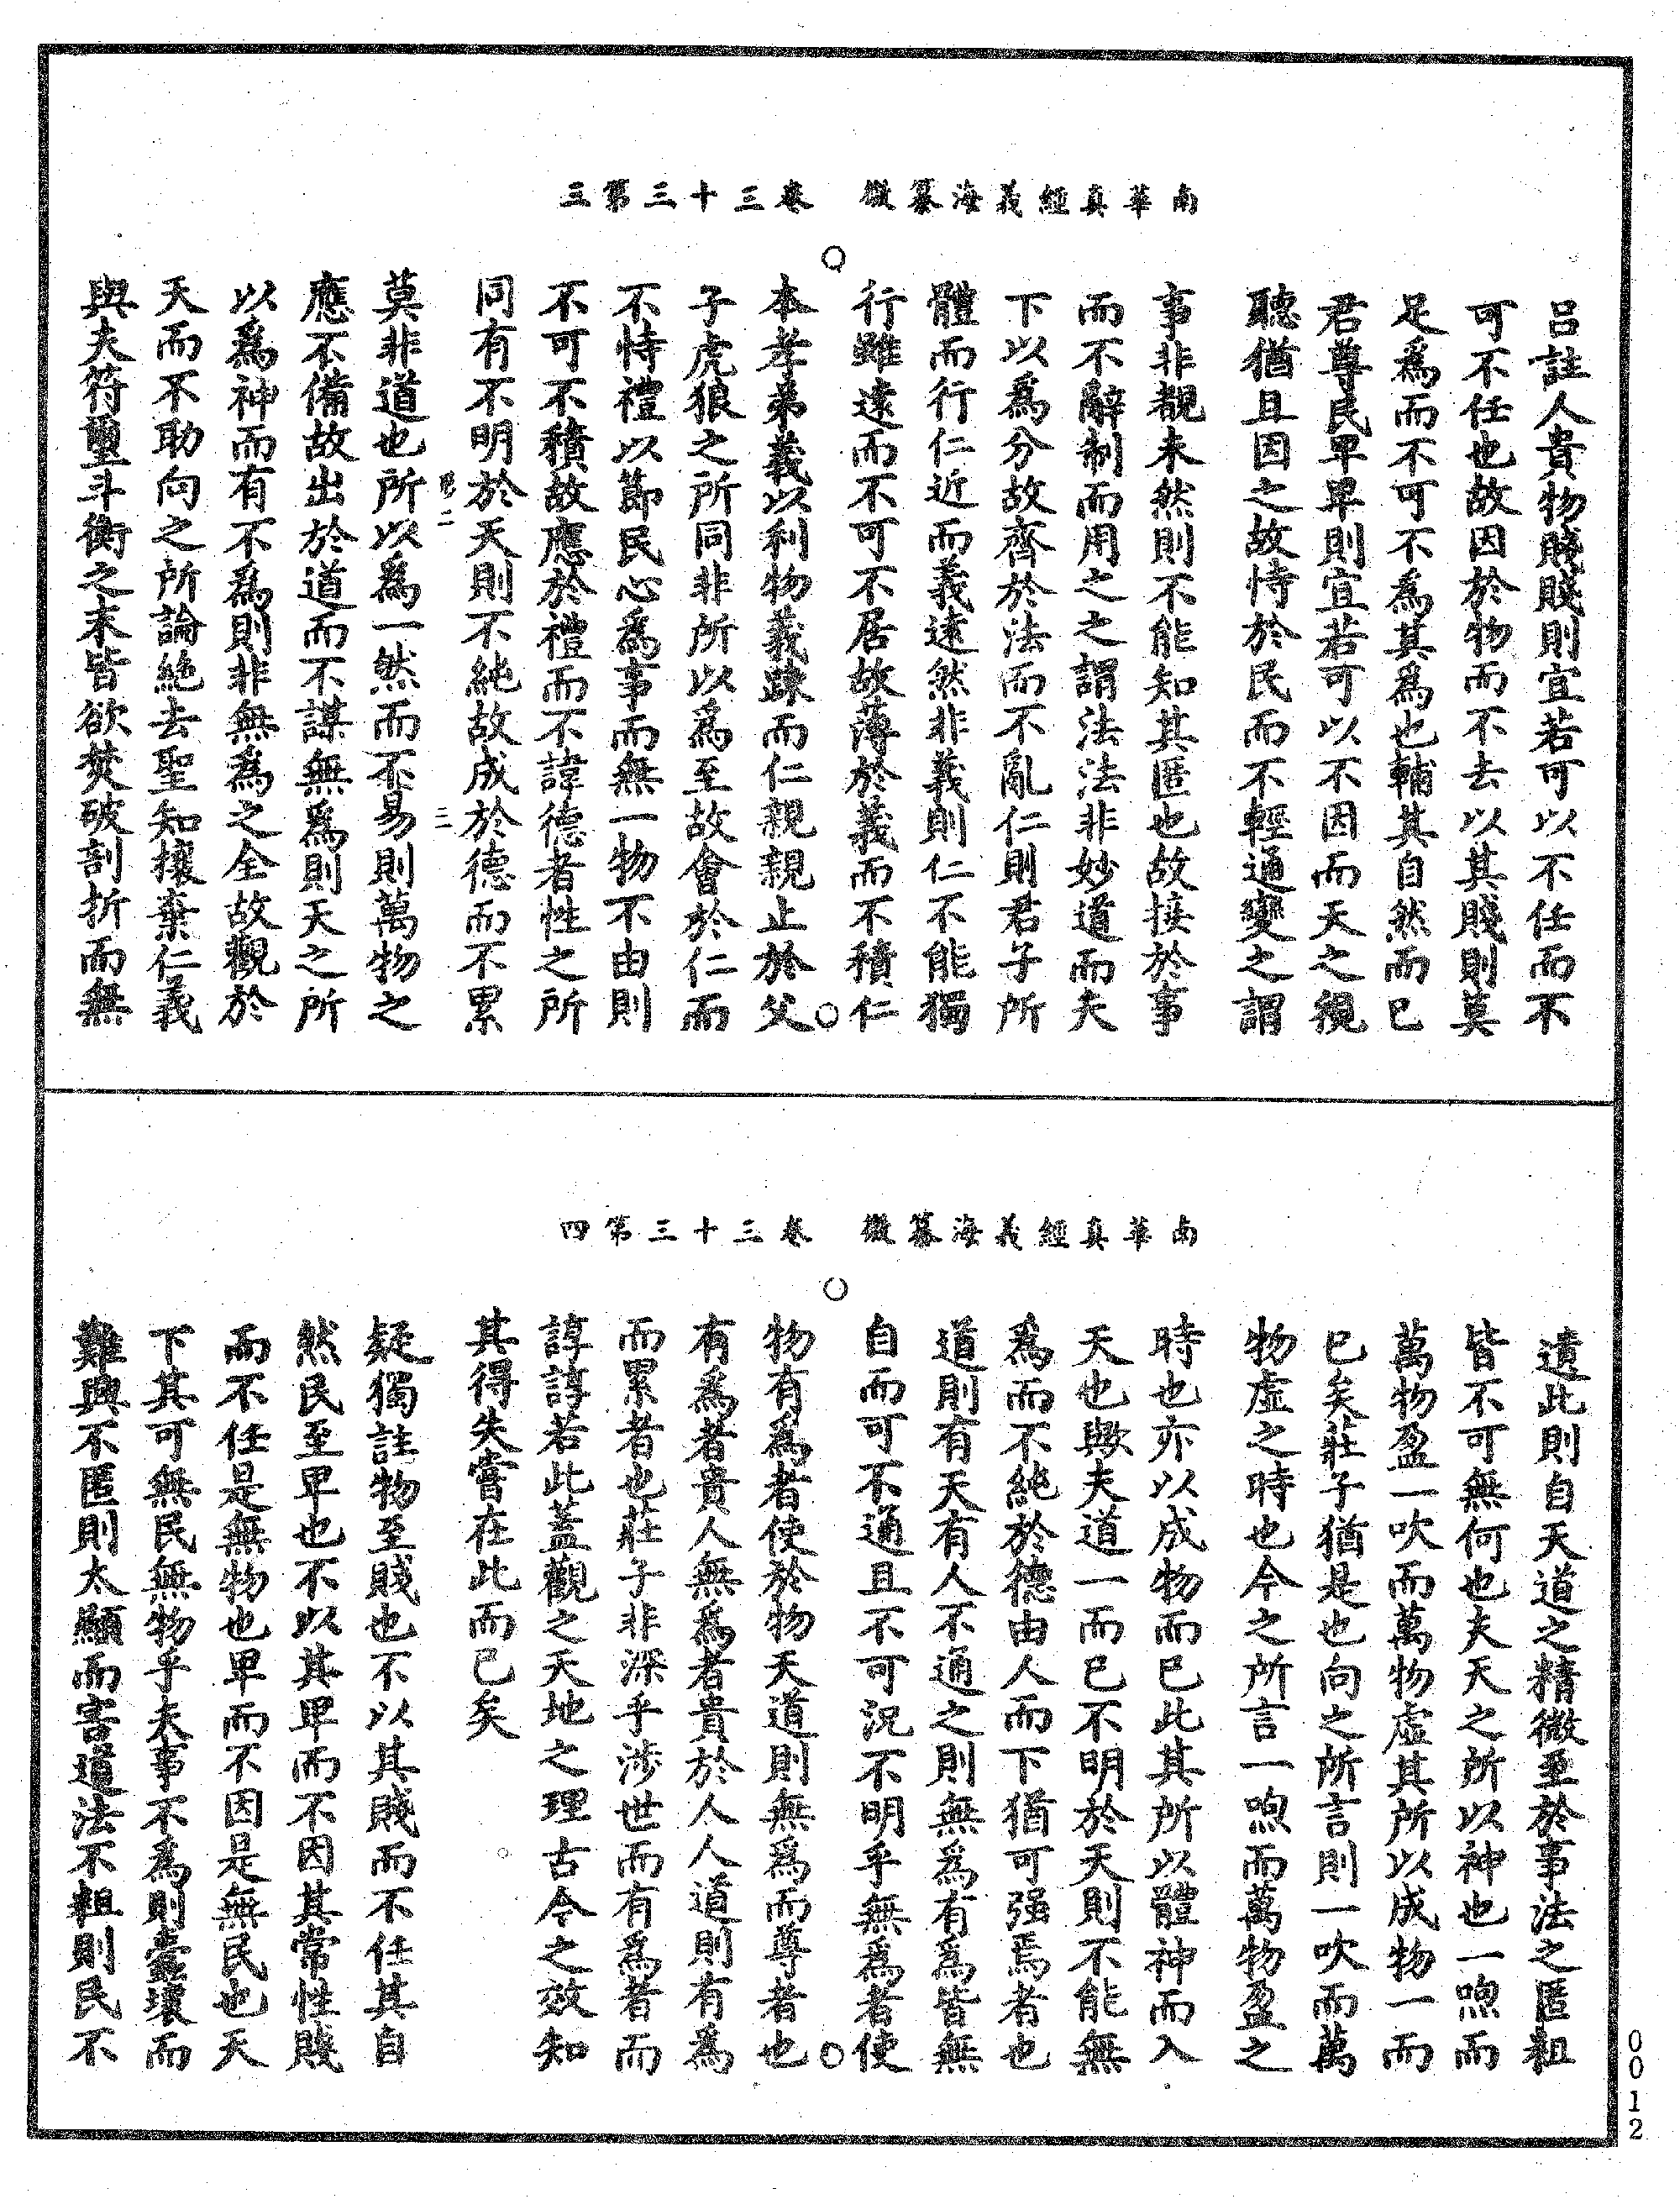 南華真經義海纂微　卷三十三第三
呂註人貴物賤賤則宜若可以不任而不
可不任也故因於物而不去以其賤則莫
足爲而不可不爲其爲也輔其自然而已
君尊民卑卑則宜若可以不因而天之視
聽猶且因之故恃於民而不輕通變之謂
事非覩未然則不能知其匿也故接於事
而不辭制而用之之謂法法非妙道而夫
下以爲分故齊於法而不亂仁則君子所
體而行行仁近而義遠然非義則仁不能獨
行雖遠而不可不居故薄於義而不積仁
本孝弟義以利物義踈而仁親親止於父
子虎狼之所同非所以爲至故會於仁而
不恃禮以節民心爲事而無一物不由則
不可不積故應於禮而不諱德者性之所
同有不明於天則不純故成於德而不累
莫非道也所以爲一然而不易則萬物之
應不備故出於道而不謀無爲則天之所
以爲神而有不爲則非無爲之全故觀於
天而不助向之所論絶去聖知攘棄仁義
與夫符璽斗衡之末皆欲焚破剖折而無
南華真經義海纂微　卷三十三第四
遺此則自天道之精微至於事法之匿粗
皆不可無何也夫天之所以神也一喣而
萬物盈一吹而萬物虛其所以成物一而
已矣莊子猶是也向之所言則一吹而萬
物虛之時也今之所言一喣而萬物盈之
時也亦以成物而已此其所以體神而入
天也歟夫道一而已不明於天則不能無
爲而不純於德由人而下猶可强焉者也
道則有天有人不通之則無爲有爲皆無
自而可不通且不可況不明乎無爲者使
物有爲者使於物天道則無爲而尊者也
有爲者貴人無爲者貴於人人道則有爲
而累者也莊子非深乎涉世而有爲者而
諄諄若此蓋觀之天地之理古今之效知
其得失嘗在此而已矣
疑獨註物至賤也不以其賤而不任其自
然民至卑也不以其卑而不因其常性賤
而不任是無物也卑而不因是無民也天
下其可無民無物乎夫事不爲則蠹壞而
難與不匿則太顯而害道法不粗則民不
0012